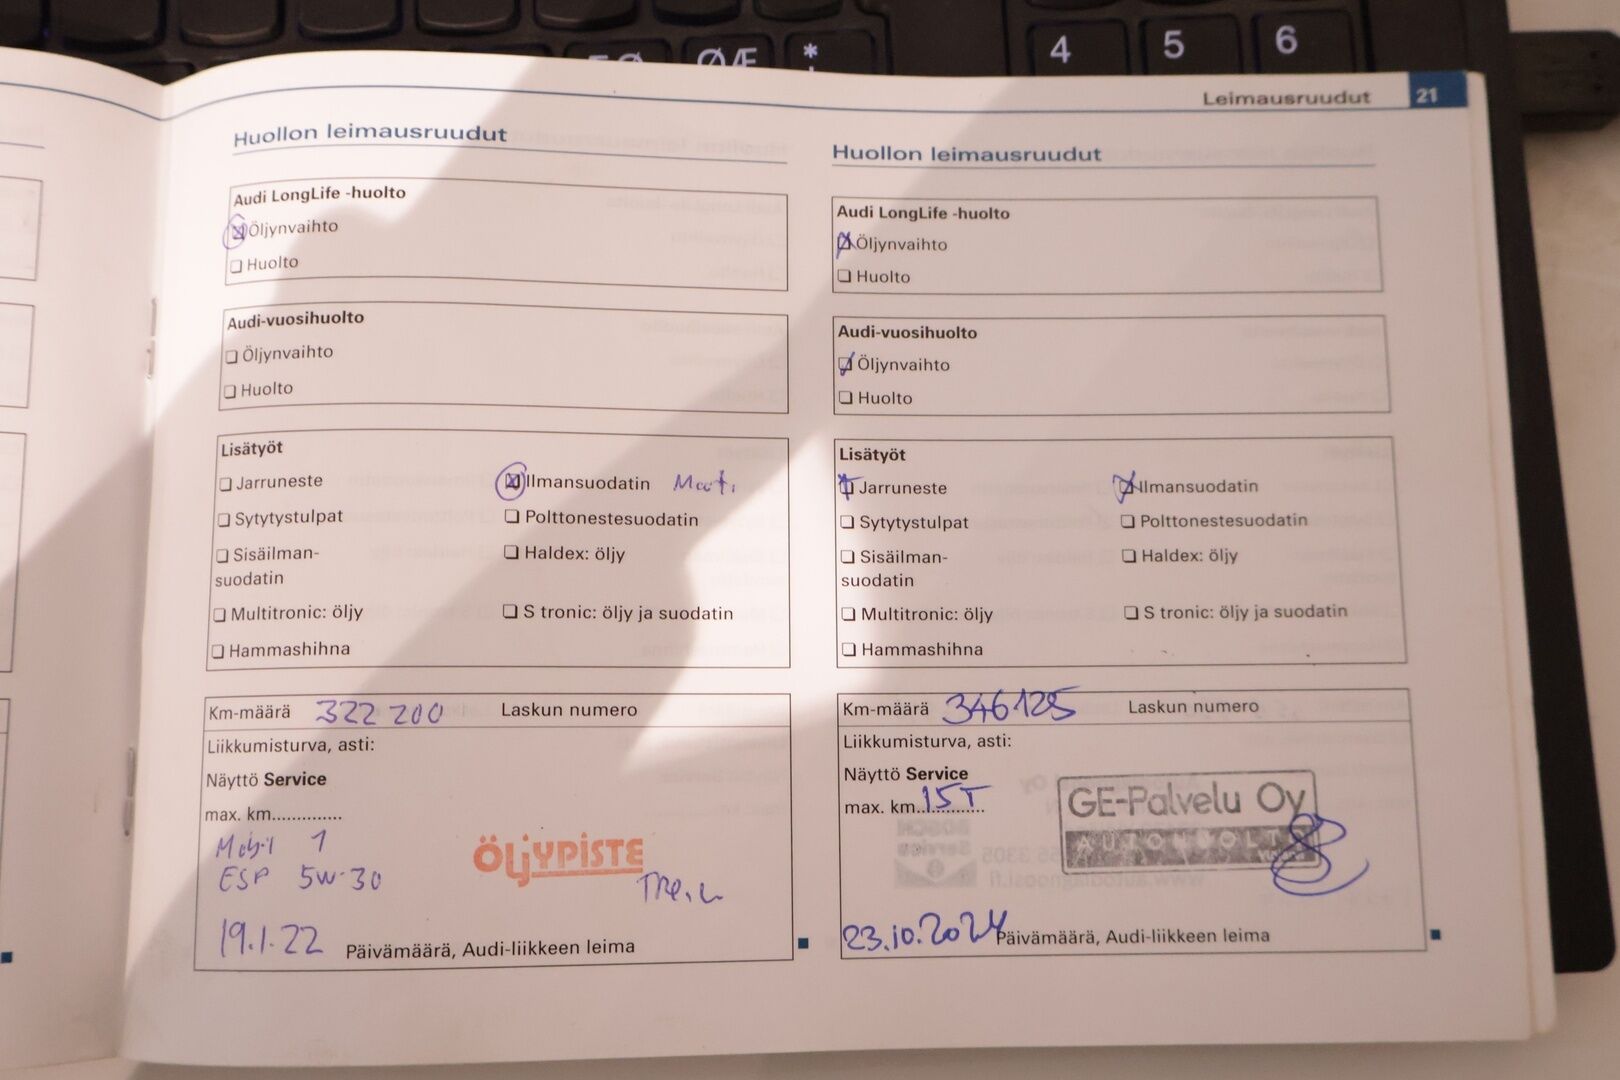 ØÆ
*
4
5
6
Leimausruudut 21
Huollon leimausruudut
Audi LongLife -huolto
Öljynvaihto
Huolto
Audi-vuosihuolto
Öljynvaihto
Huolto
Lisätyöt
Jarruneste
Ilmansuodatin
Sytytystulpat
Polttonestesuodatin
Sisäilman-
suodatin
Haldex: öljy
Multitronic: öljy
S tronic: öljy ja suodatin
Hammashihna
Km-määrä 322 200 Laskun numero
Liikkumisturva, asti:
Näyttö Service
max. km.............
Mobil 1
ESP 5W-30
ÖLJYPISTE
19.1.22 Päivämäärä, Audi-liikkeen leima
Huollon leimausruudut
Audi LongLife -huolto
Öljynvaihto
Huolto
Audi-vuosihuolto
Öljynvaihto
Huolto
Lisätyöt
Jarruneste
Ilmansuodatin
Sytytystulpat
Polttonestesuodatin
Sisäilman-
suodatin
Haldex: öljy
Multitronic: öljy
S tronic: öljy ja suodatin
Hammashihna
Km-määrä 346125 Laskun numero
Liikkumisturva, asti:
Näyttö Service
max. km. 15T
GE-Palvelu Oy
AUTOHUOLTO
23.10.2024 Päivämäärä, Audi-liikkeen leima